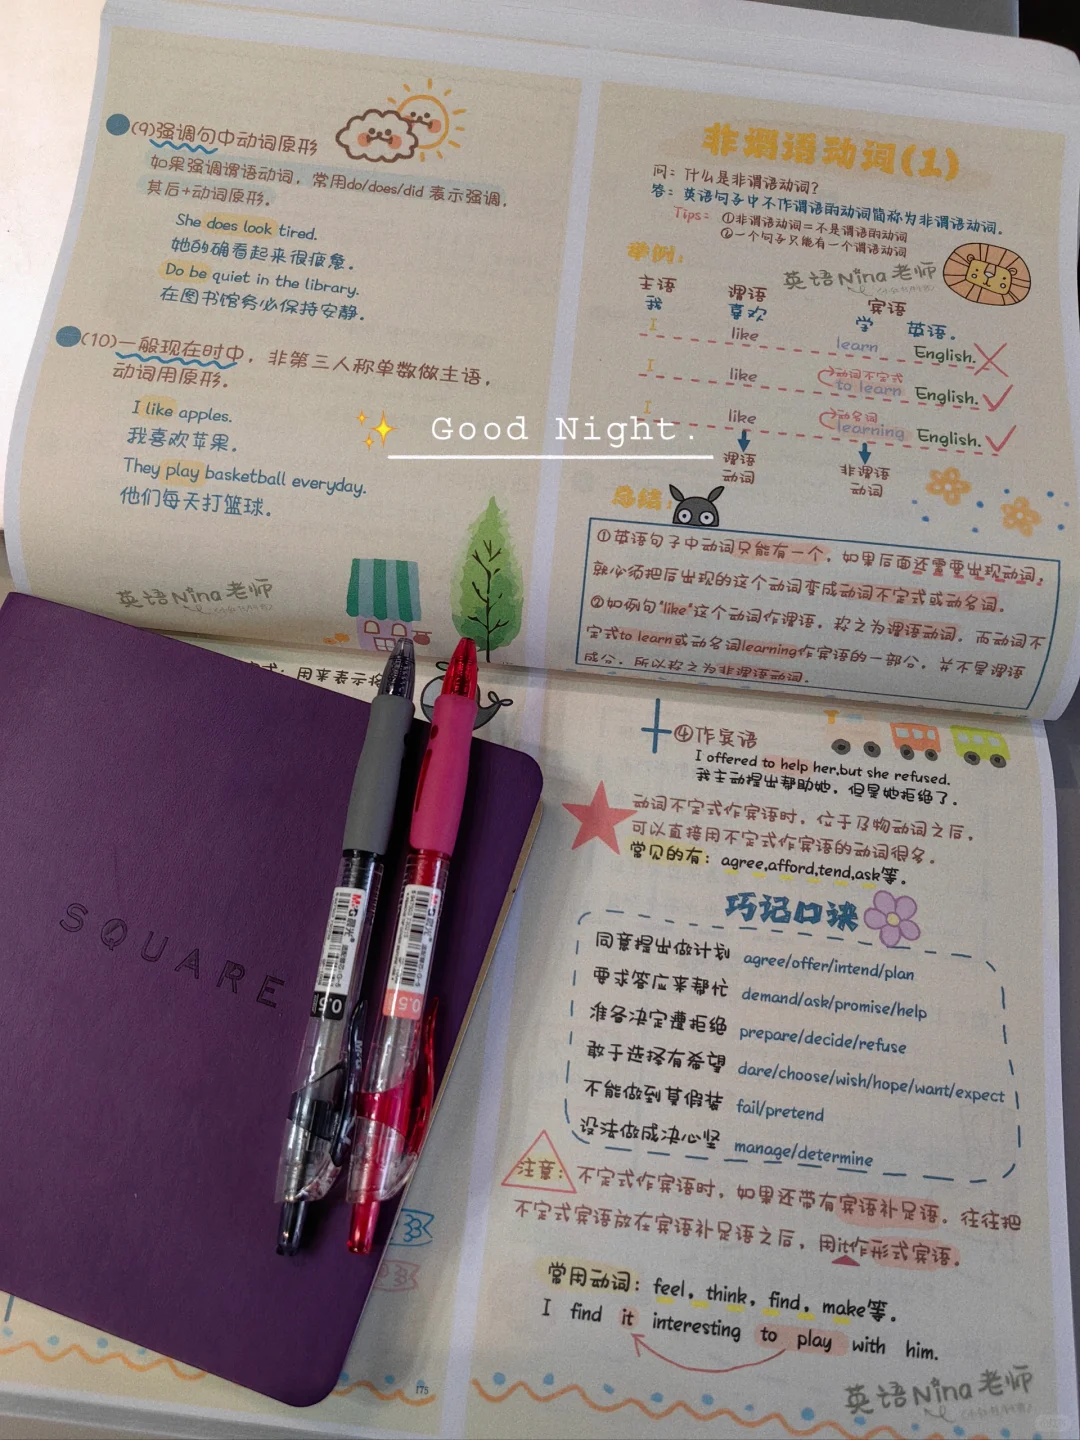 (9)强调句中动词原形
如果强调谓语动词，常用do/does/did 表示强调，
其后+动词原形。
She does look tired.
她的确看起来很疲惫。
Do be quiet in the library.
在图书馆务必保持安静。
(10)一般现在时中，非第三人称单数做主语，
动词用原形。
I like apples.
我喜欢苹果。
They play basketball everyday.
他们每天打篮球。
英语Nina老师
非谓语动词(1)
问：什么是非谓语动词？
答：英语句子中不作谓语的动词简称为非谓语动词。
Tips： ①非谓语动词=不是谓语的动词
②一个句子只能有一个谓语动词
举例：
英语Nina老师
主语 谓语 宾语
我 喜欢 学 英语。
I like learn English.
动词不定式
I like to learn English.
动名词
I like learning English.
谓语 非谓语
动词 动词
✨ Good Night.
总结：
①英语句子中动词只能有一个，如果后面还需要出现动词，
就必须把后出现的这个动词变成动词不定式或动名词。
②如例句"like"这个动词作谓语，称之为谓语动词，而动词不
定式to learn或动名词learning作宾语的一部分，并不是谓语
成分，所以称之为非谓语动词。
式：用来表示将
④作宾语
I offered to help her,but she refused.
我主动提出帮助她，但是她拒绝了。
动词不定式作宾语时，位于及物动词之后，
可以直接用不定式作宾语的动词很多。
常见的有：agree,afford,tend,ask等。
巧记口诀
同意提出做计划 agree/offer/intend/plan
要求答应来帮忙 demand/ask/promise/help
准备决定遭拒绝 prepare/decide/refuse
敢于选择有希望 dare/choose/wish/hope/want/expect
不能做到莫假装 fail/pretend
设法做成决心坚 manage/determine
注意：不定式作宾语时，如果还带有宾语补足语，往往把
不定式宾语放在宾语补足语之后，用it作形式宾语。
常用动词：feel，think，find，make等。
I find it interesting to play with him.
英语Nina老师
175
SQUARE
M&G晨光
0.5
M&G晨光
0.5